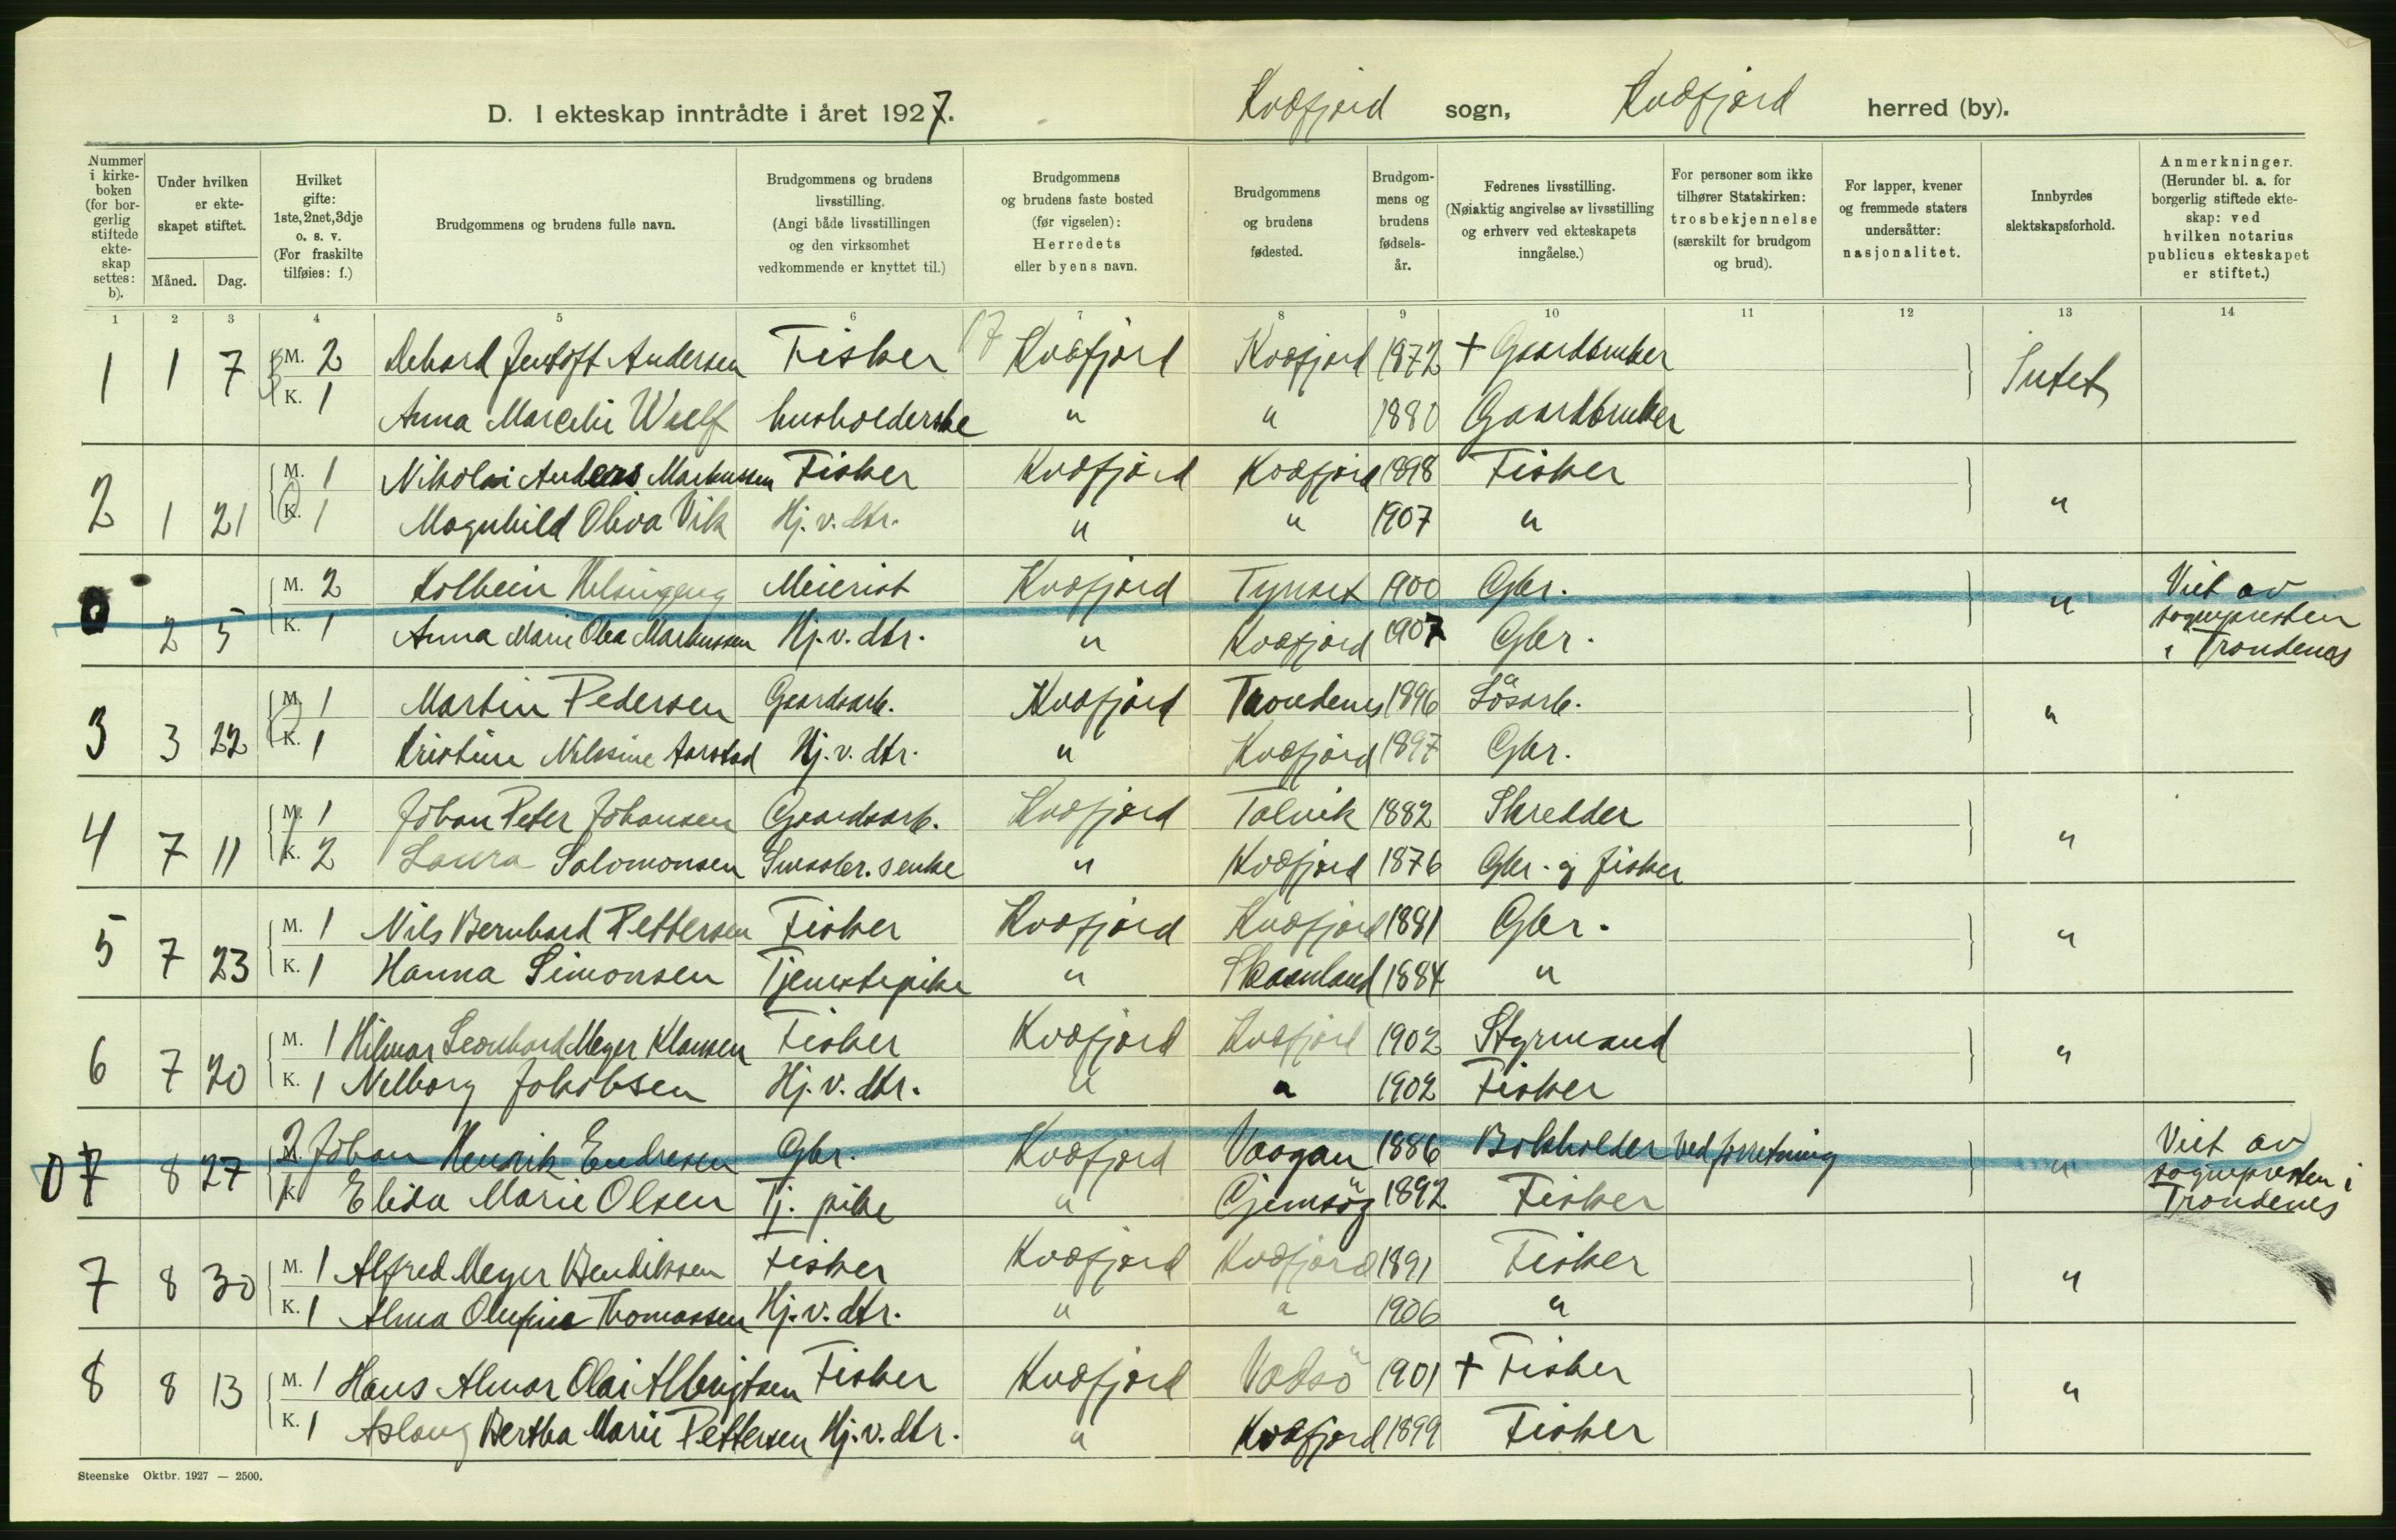 D. I ekteskap inntrådte i året 1927. Kvæfjord sogn, Kvæfjord herred (by).
Nummer i kirkeboken (for borgerlig stiftede ekteskap settes: b).
Under hvilken er ekteskapet stiftet.
Måned. Dag.
Hvilket gifte: 1ste, 2net, 3dje o. s. v. (For fraskilte tilføies: f.)
Brudgommens og brudens fulle navn.
Brudgommens og brudens livsstilling. (Angi både livsstillingen og den virksomhet vedkommende er knyttet til.)
Brudgommens og brudens faste bosted (før vigselen): Herredets eller byens navn.
Brudgommens og brudens fødested.
Brudgommens og brudens fødselsår.
Fedrenes livsstilling. (Nøiaktig angivelse av livsstilling og erhverv ved ekteskapets inngåelse.)
For personer som ikke tilhører Statskirken: trosbekjennelse (særskilt for brudgom og brud).
For lapper, kvener og fremmede staters undersåtter: nasjonalitet.
Innbyrdes slektskapsforhold.
Anmerkninger. (Herunder bl. a. for borgerlig stiftede ekteskap: ved hvilken notarius publicus ekteskapet er stiftet.)
1 2 3 4 5 6 7 8 9 10 11 12 13 14
1 1 7 M. 2 Dehard Jentoft Andersen Fisker Kvæfjord Kvæfjord 1872 + Gaardbruker Intet
K. 1 Anna Marcelie Wulf husholderske " " 1880 Gaardbruker
2 1 21 M. 1 Nikolai Anders Markussen Fisker Kvæfjord Kvæfjord 1898 Fisker "
K. 1 Magnhild Oliva Vik Hj. v. dtr. " " 1907 "
0 2 5 M. 2 Kolbein Meierist Kvæfjord Tynset 1900 Gbr. " Viet av
K. 1 Anna Marie Olea Markussen Hj. v. dtr. " Kvæfjord 1907 Gbr. sognepresten
i Trondenes
3 3 22 M. 1 Martin Pedersen Gaardsarb. Kvæfjord Trondenes 1896 Lösarb. "
K. 1 Kristine Nilssine Aarstad Hj. v. dtr. " Kvæfjord 1897 Gbr.
4 7 11 M. 1 Johan Peter Johansen Gaardsarb. Kvæfjord Talvik 1882 Skredder "
K. 2 Laura Salomonsen Smaabr. s enke " Kvæfjord 1876 Gbr. og fisker
5 7 23 M. 1 Nils Bernhard Pettersen Fisker Kvæfjord Kvæfjord 1891 Gbr. "
K. 1 Hanna Simonsen Tjenestepike " Skaanland 1884 "
6 7 20 M. 1 Hilmar Leonhard Meyer Klausen Fisker Kvæfjord Kvæfjord 1902 Styrmand "
K. 1 Nelborg Jakobsen Hj. v. dtr. " " 1902 Fisker
0 7 8 27 2 Johan Henrik Endresen Gbr. Kvæfjord Vaagan 1886 Bokholder ved forretning " Viet av
K. 1 Elida Marie Olsen Tj. pike " Gjemsöy 1892 Fisker sognepresten i
Trondenes
7 8 30 M. 1 Alfred Meyer Bendiksen Fisker Kvæfjord Kvæfjord 1891 Fisker "
K. 1 Alma Olufine Thomassen Hj. v. dtr. " " 1906 "
8 8 13 M. 1 Hans Almar Olai Albrigtsen Fisker Kvæfjord Vadsö 1901 + Fisker "
K. 1 Aslaug Bertha Marie Pettersen Hj. v. dtr. " Kvæfjord 1899 Fisker
Steenske Oktbr. 1927 — 2500.